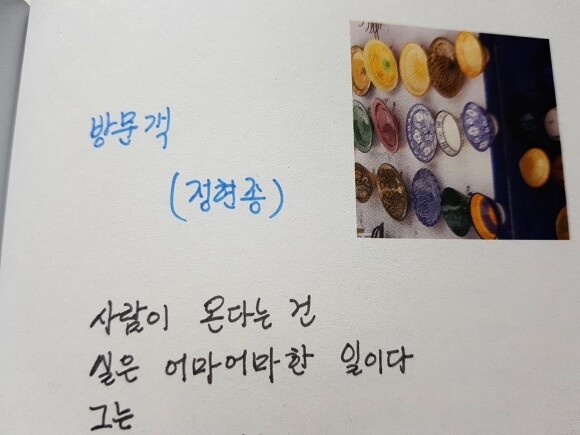 방문객
(정현종)
사람이 온다는 건
실은 어마어마한 일이다
그는